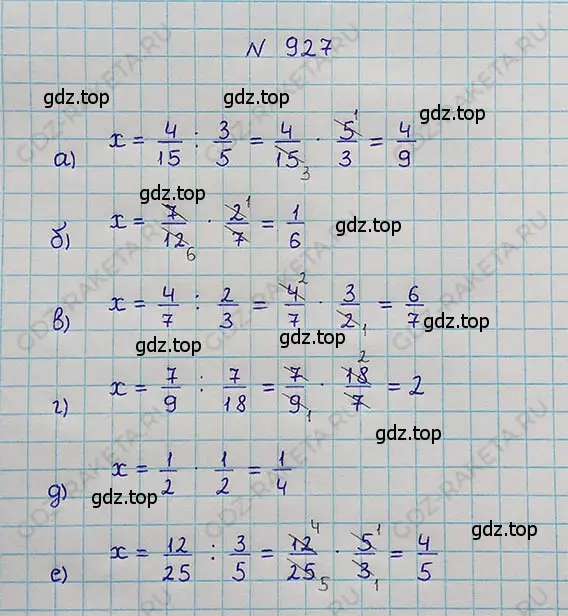 N 927
gdz.top gdz.top gdz.top
а) x = 4/15 : 3/5 = 4/15 3 · 5 1/3 = 4/9
gdz.top
б) x = 7/12 6 · 2 1/7 = 1/6 gdz.top
в) x = 4/7 : 2/3 = 4 2/7 · 3/2 1 = 6/7 gdz.top
gdz.top gdz.top
г) x = 7/9 : 7/18 = 7/9 1 · 18 2/7 = 2
gdz.top
д) x = 1/2 · 1/2 = 1/4
gdz.top gdz.top
е) x = 12/25 : 3/5 = 12 4/25 5 · 5 1/3 1 = 4/5
gdz.top gdz.top
GDZ-RAKETA.RU